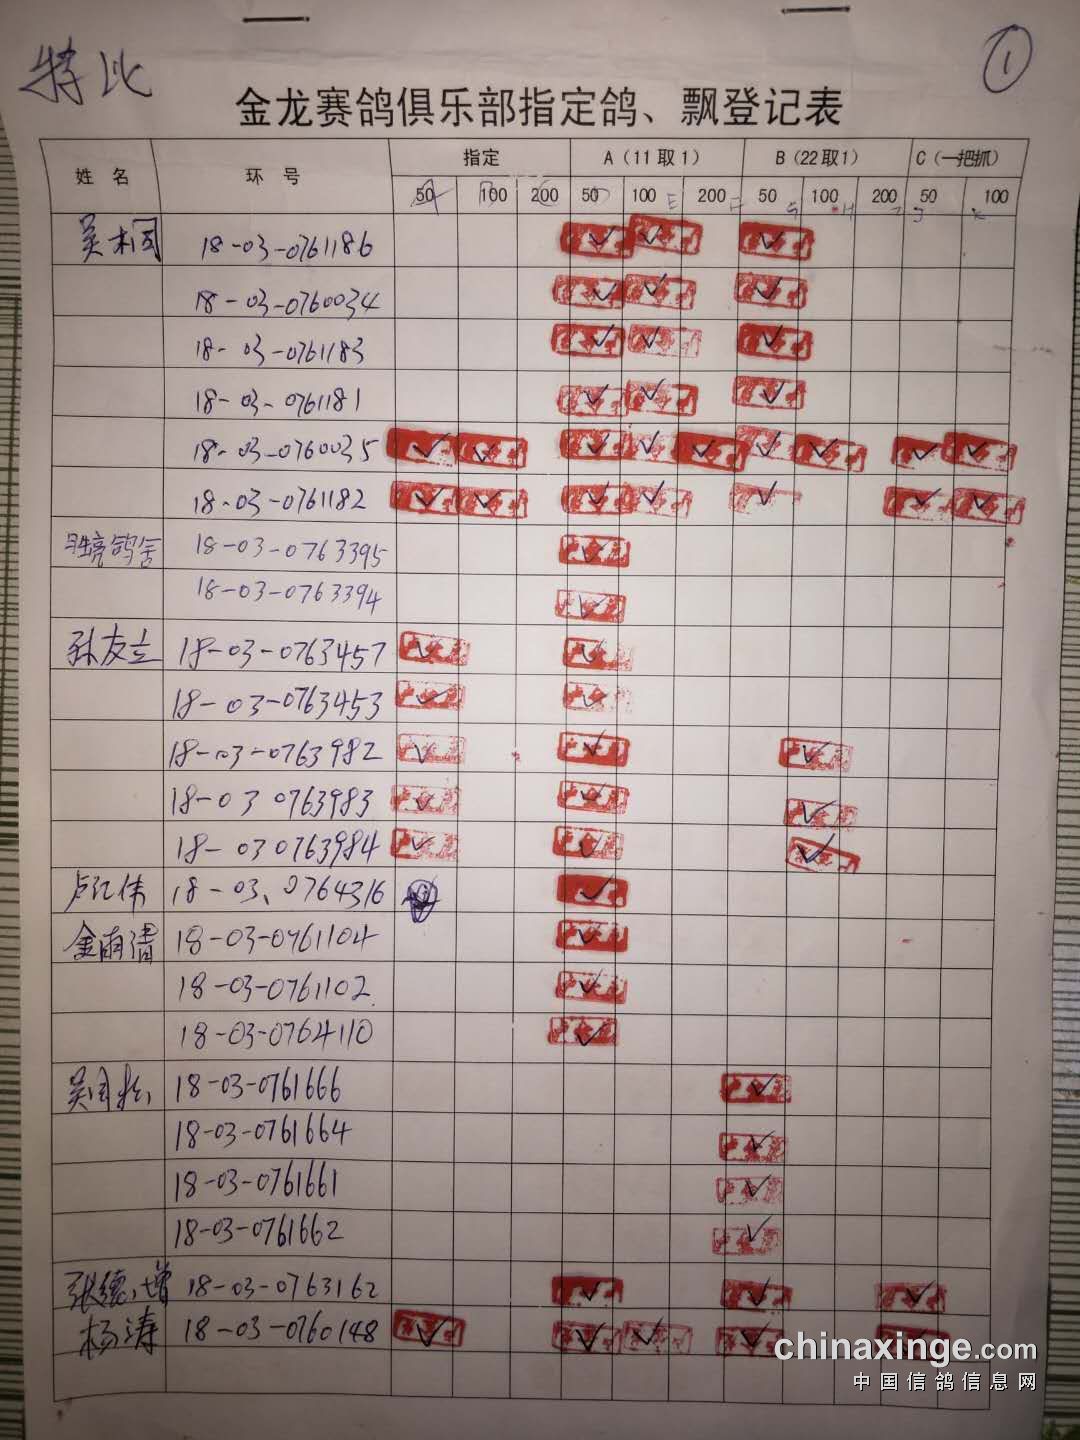 特比
①
金龙赛鸽俱乐部指定鸽、飘登记表
姓 名 环 号 指定 A（11取1） B（22取1） C（一把抓）
50 100 200 50 100 200 50 100 200 50 100
E F G H J K
18-03-0761186
18-03-0760034
18-03-0761183
18-03-0761181
18-03-0760035
18-03-0761182
鸽舍 18-03-0763395
18-03-0763394
孙友立 18-03-0763457
18-03-0763453
18-03-0763982
18-03 0763983
18-03 0763984
卢江伟 18-03、0764316
金雨清 18-03-0761104
18-03-0761102
18-03-0764110
18-03-0761666
18-03-0761664
18-03-0761661
18-03-0761662
张德增 18-03-0763162
杨涛 18-03-0760148
chinaxinge.com
中国信鸽信息网